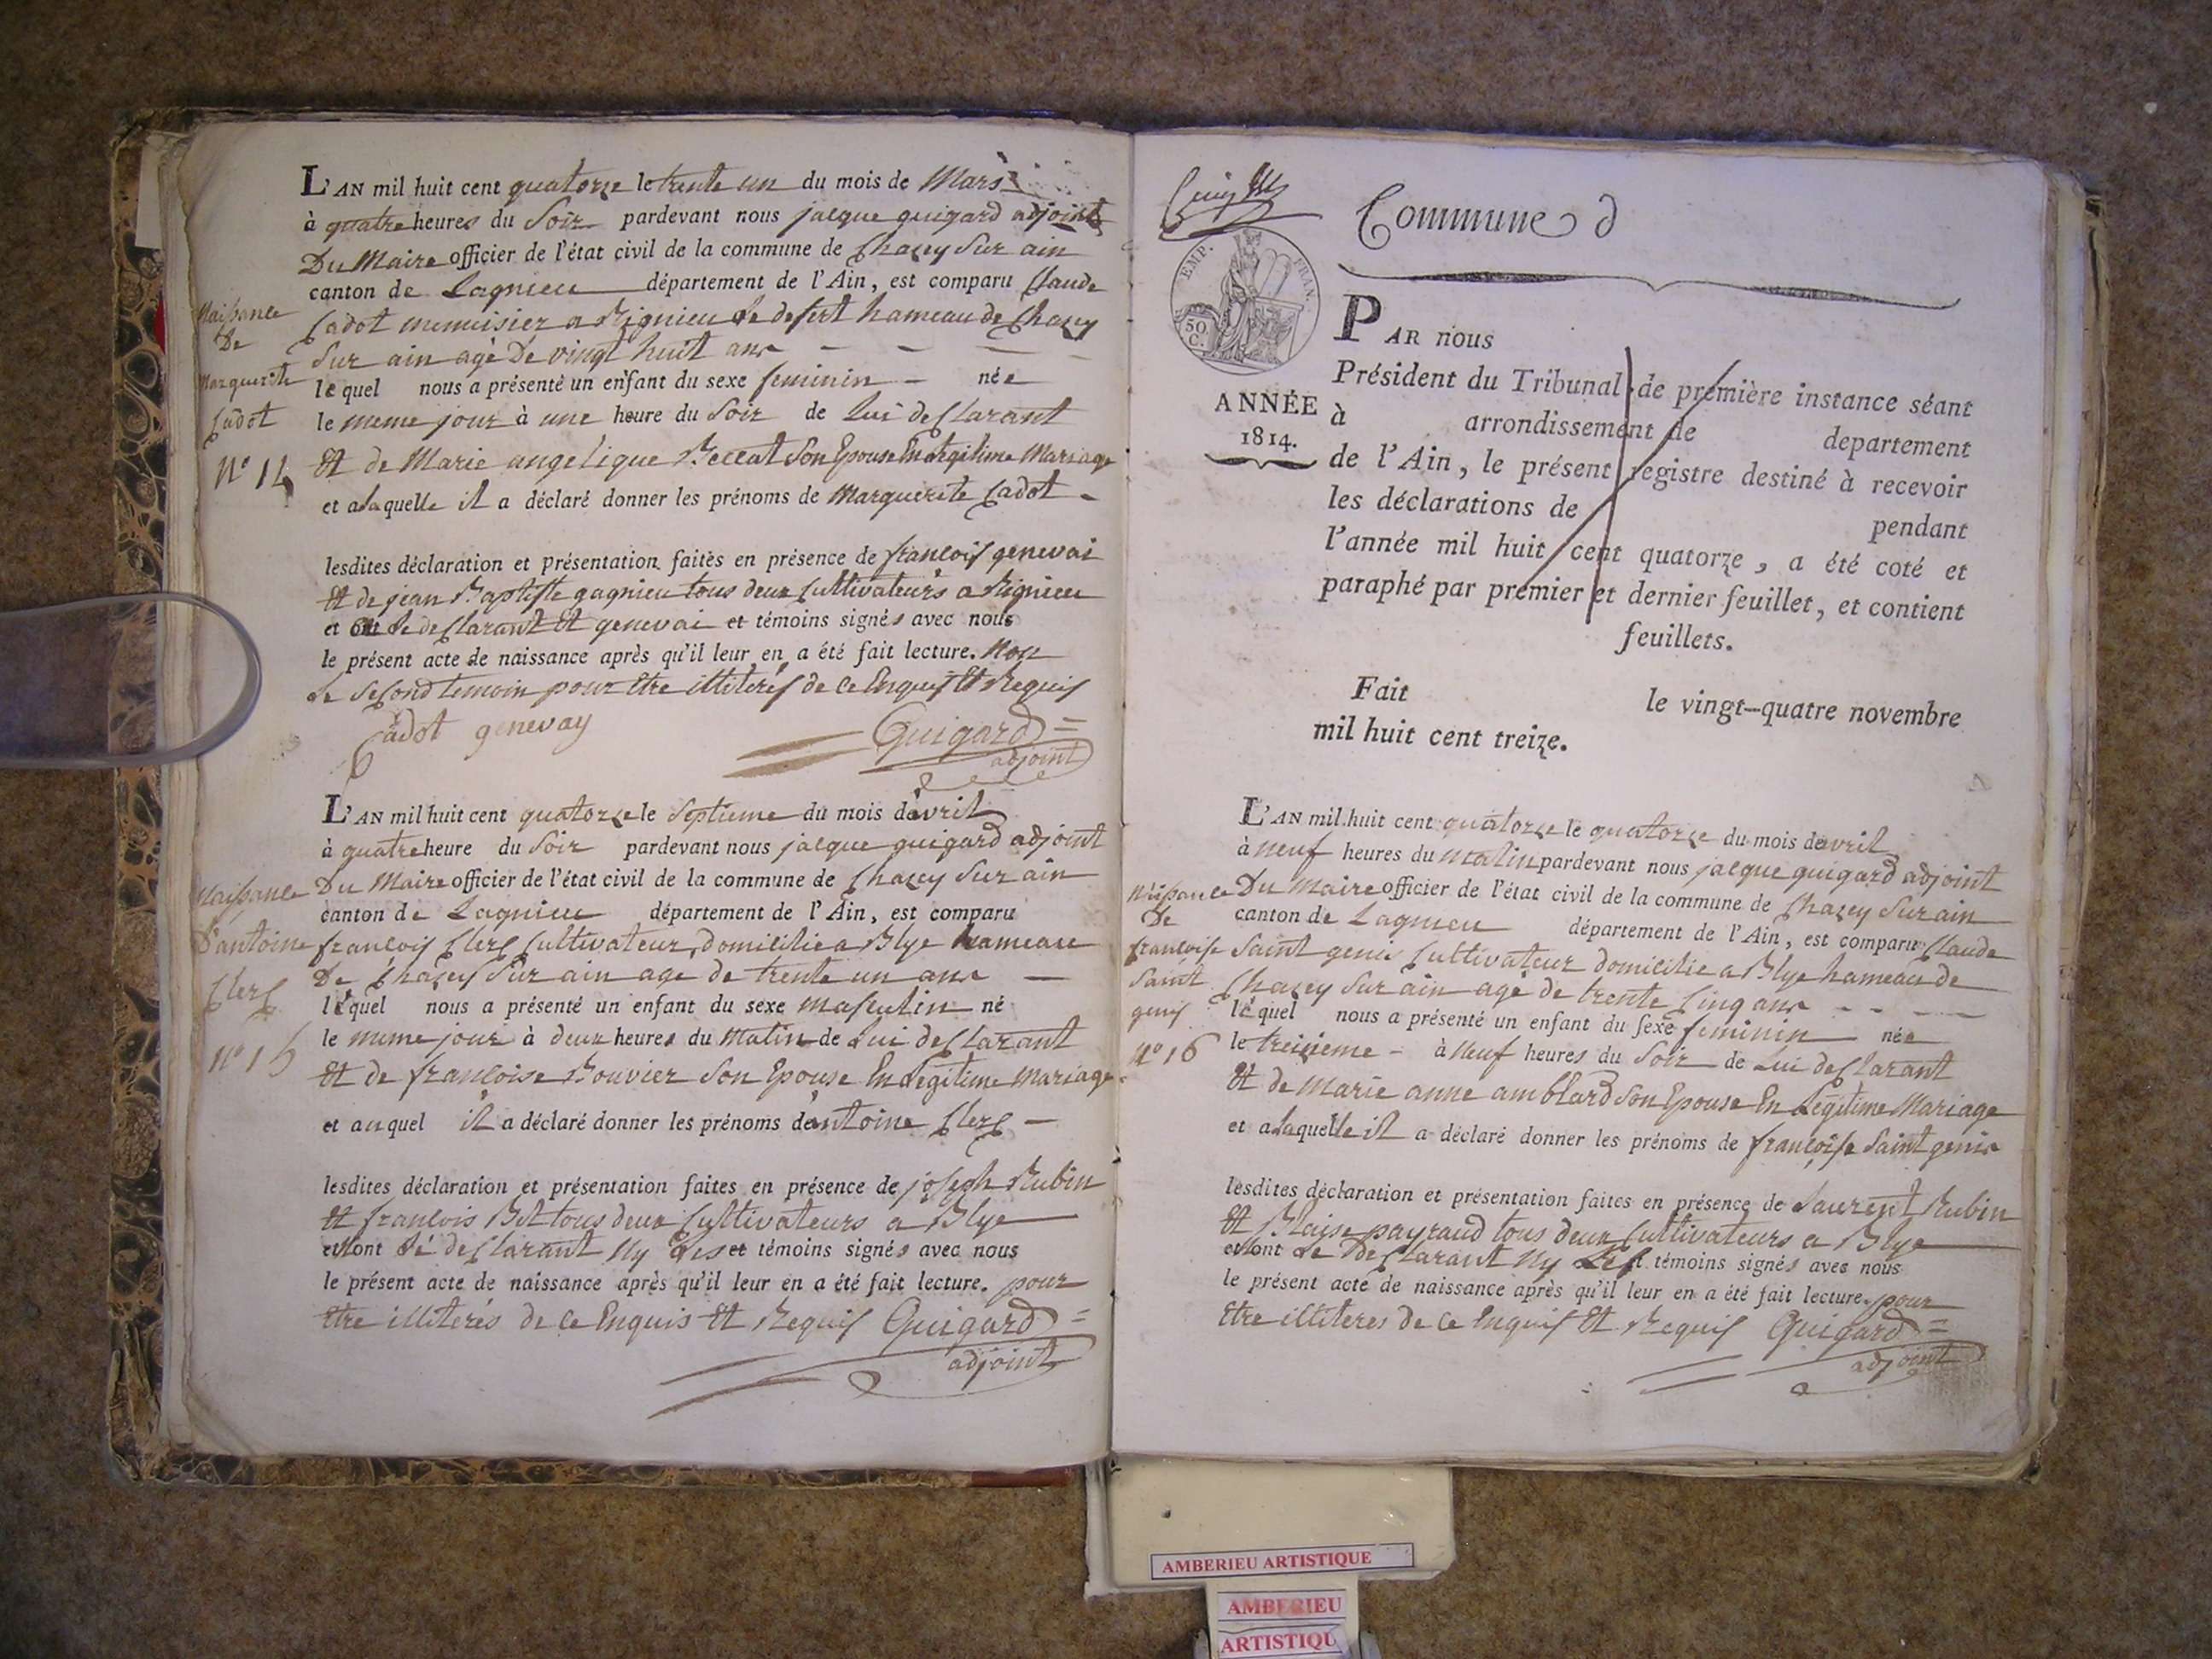 L'AN mil huit cent quatorze le trente un du mois de Mars
à quatre heures du Soir pardevant nous jacque guigard adjoint
Du Maire officier de l'état civil de la commune de Chazey Sur ain
canton de Lagnieu département de l'Ain, est comparu Claude
Cadot menuisier a Rignieu Le desert hameau de Chazey
Sur ain agé de vingt huit ans
lequel nous a présenté un enfant du sexe feminin née
le meme jour à une heure du Soir de Lui deClarant
Et de Marie angelique Son Epouse En Legitime Mariage
et a laquelle il a déclaré donner les prénoms de Marguerite Cadot
Naissance
De
Marguerite
Cadot
N° 14
lesdites déclaration et présentation faites en présence de francois genevai
Et de jean Baptiste gagnieu tous deux Cultivateurs a Rignieu
et ont Le deClarant Et genevai et témoins signés avec nous
le présent acte de naissance après qu'il leur en a été fait lecture. Non
Le Second temoin pour Etre illiterés de Ce Enquis Et Requis
Cadot genevay Guigard
adjoint
L'AN mil huit cent quatorze le Septieme du mois d'avril
à quatre heure du Soir pardevant nous jacque guigard adjoint
Du Maire officier de l'état civil de la commune de Chazey Sur ain
canton de Lagnieu département de l'Ain, est comparu
francois Clerc Cultivateur, domicilié a Blye hameau
De Chazey Sur ain age de trente un ans
lequel nous a présenté un enfant du sexe masculin né
le meme jour à deux heures du Matin de Lui deClarant
Et de francoise Bouvier Son Epouse En Legitime Mariage
et auquel il a déclaré donner les prénoms d'antoine Clerc
Naissance
D'antoine
Clerc
N° 15
lesdites déclaration et présentation faites en présence de joseph Rubin
Et francois Bel tous deux Cultivateurs a Blye
et Lé deClarant Ny Les et témoins signés avec nous
le présent acte de naissance après qu'il leur en a été fait lecture. pour
Etre illiterés de Ce Enquis Et Requis Guigard
adjoint
Commune d
EMP. FRAN.
50 C.
ANNÉE
1814.
PAR nous
Président du Tribunal de première instance séant
à arrondissement de departement
de l'Ain, le présent registre destiné à recevoir
les déclarations de pendant
l'année mil huit cent quatorze, a été coté et
paraphé par premier et dernier feuillet, et contient
feuillets.
Fait le vingt-quatre novembre
mil huit cent treize.
L'AN mil huit cent quatorze le quatorze du mois d'avril
à neuf heures du matin pardevant nous jacque guigard adjoint
Du Maire officier de l'état civil de la commune de Chazey Sur ain
canton de Lagnieu département de l'Ain, est comparu Claude
Saint genis Cultivateur domicilié a Blye hameau de
Chazey Sur ain agé de trente Cinq ans
lequel nous a présenté un enfant du sexe feminin née
le treizieme à neuf heures du Soir de Lui deClarant
Et de Marie anne amblard Son Epouse En Légitime Mariage
et a laquelle il a déclaré donner les prénoms de francoise Saint genis
Naissance
De
francoise
Saint
genis
N° 16
lesdites déclaration et présentation faites en présence de Laurent Rubin
Et Blaise payraud tous deux Cultivateurs a Blye
et Le DeClarant Ny Les témoins signés avec nous
le présent acte de naissance après qu'il leur en a été fait lecture. pour
Etre illiteres de Ce Enquis Et Requis Guigard
adjoint
AMBERIEU ARTISTIQUE
AMBERIEU
ARTISTIQU